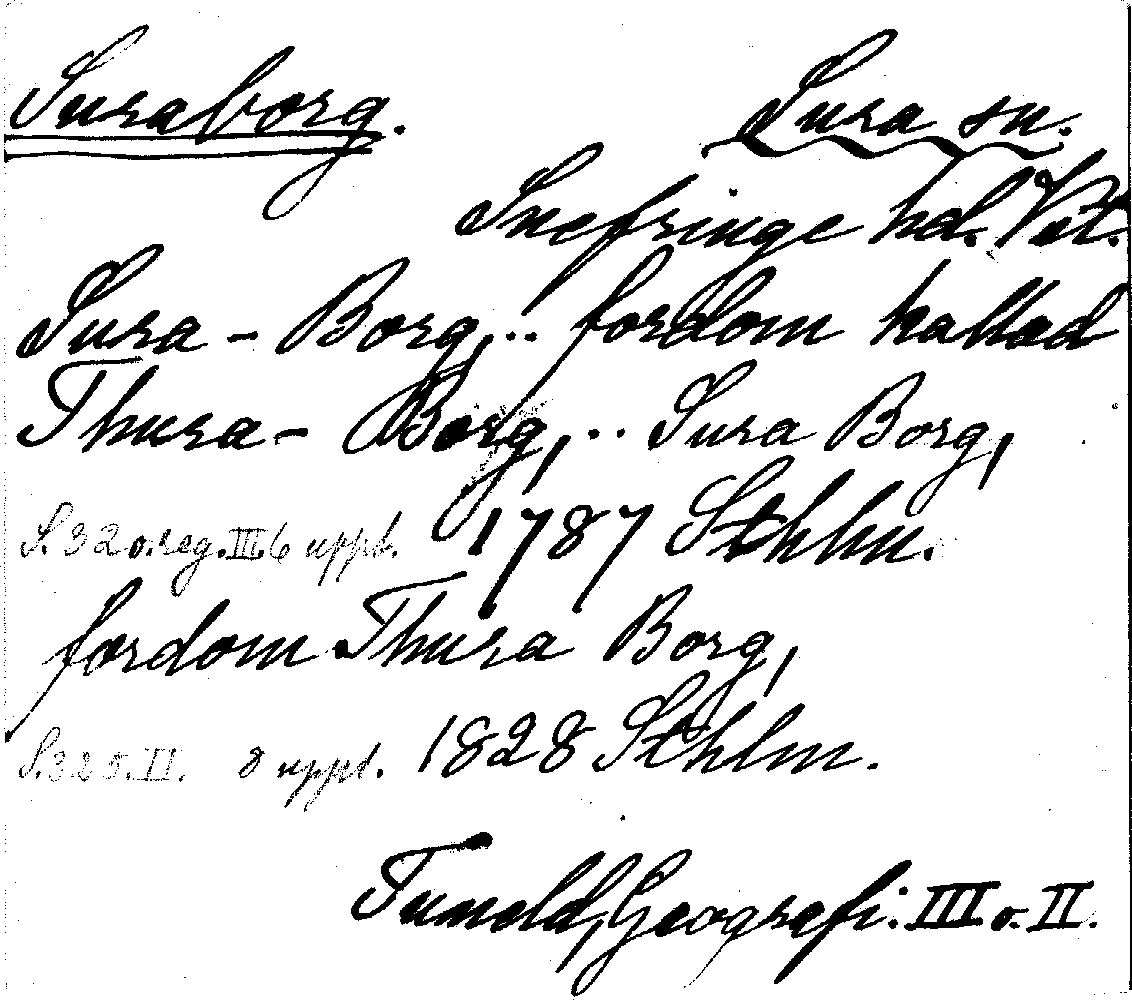 Suraborg. Sura sn.
Snefringe hd. Vst.
Sura - Borg, .. fordom kallad
Thura - Borg, .. Sura Borg,
S. 32 o. reg. III. 6 uppl. 1787 Sthlm.
fordom Thura Borg,
S. 325. II. 8 uppl. 1828 Sthlm.
Tuneld, Geografi. III o. II.